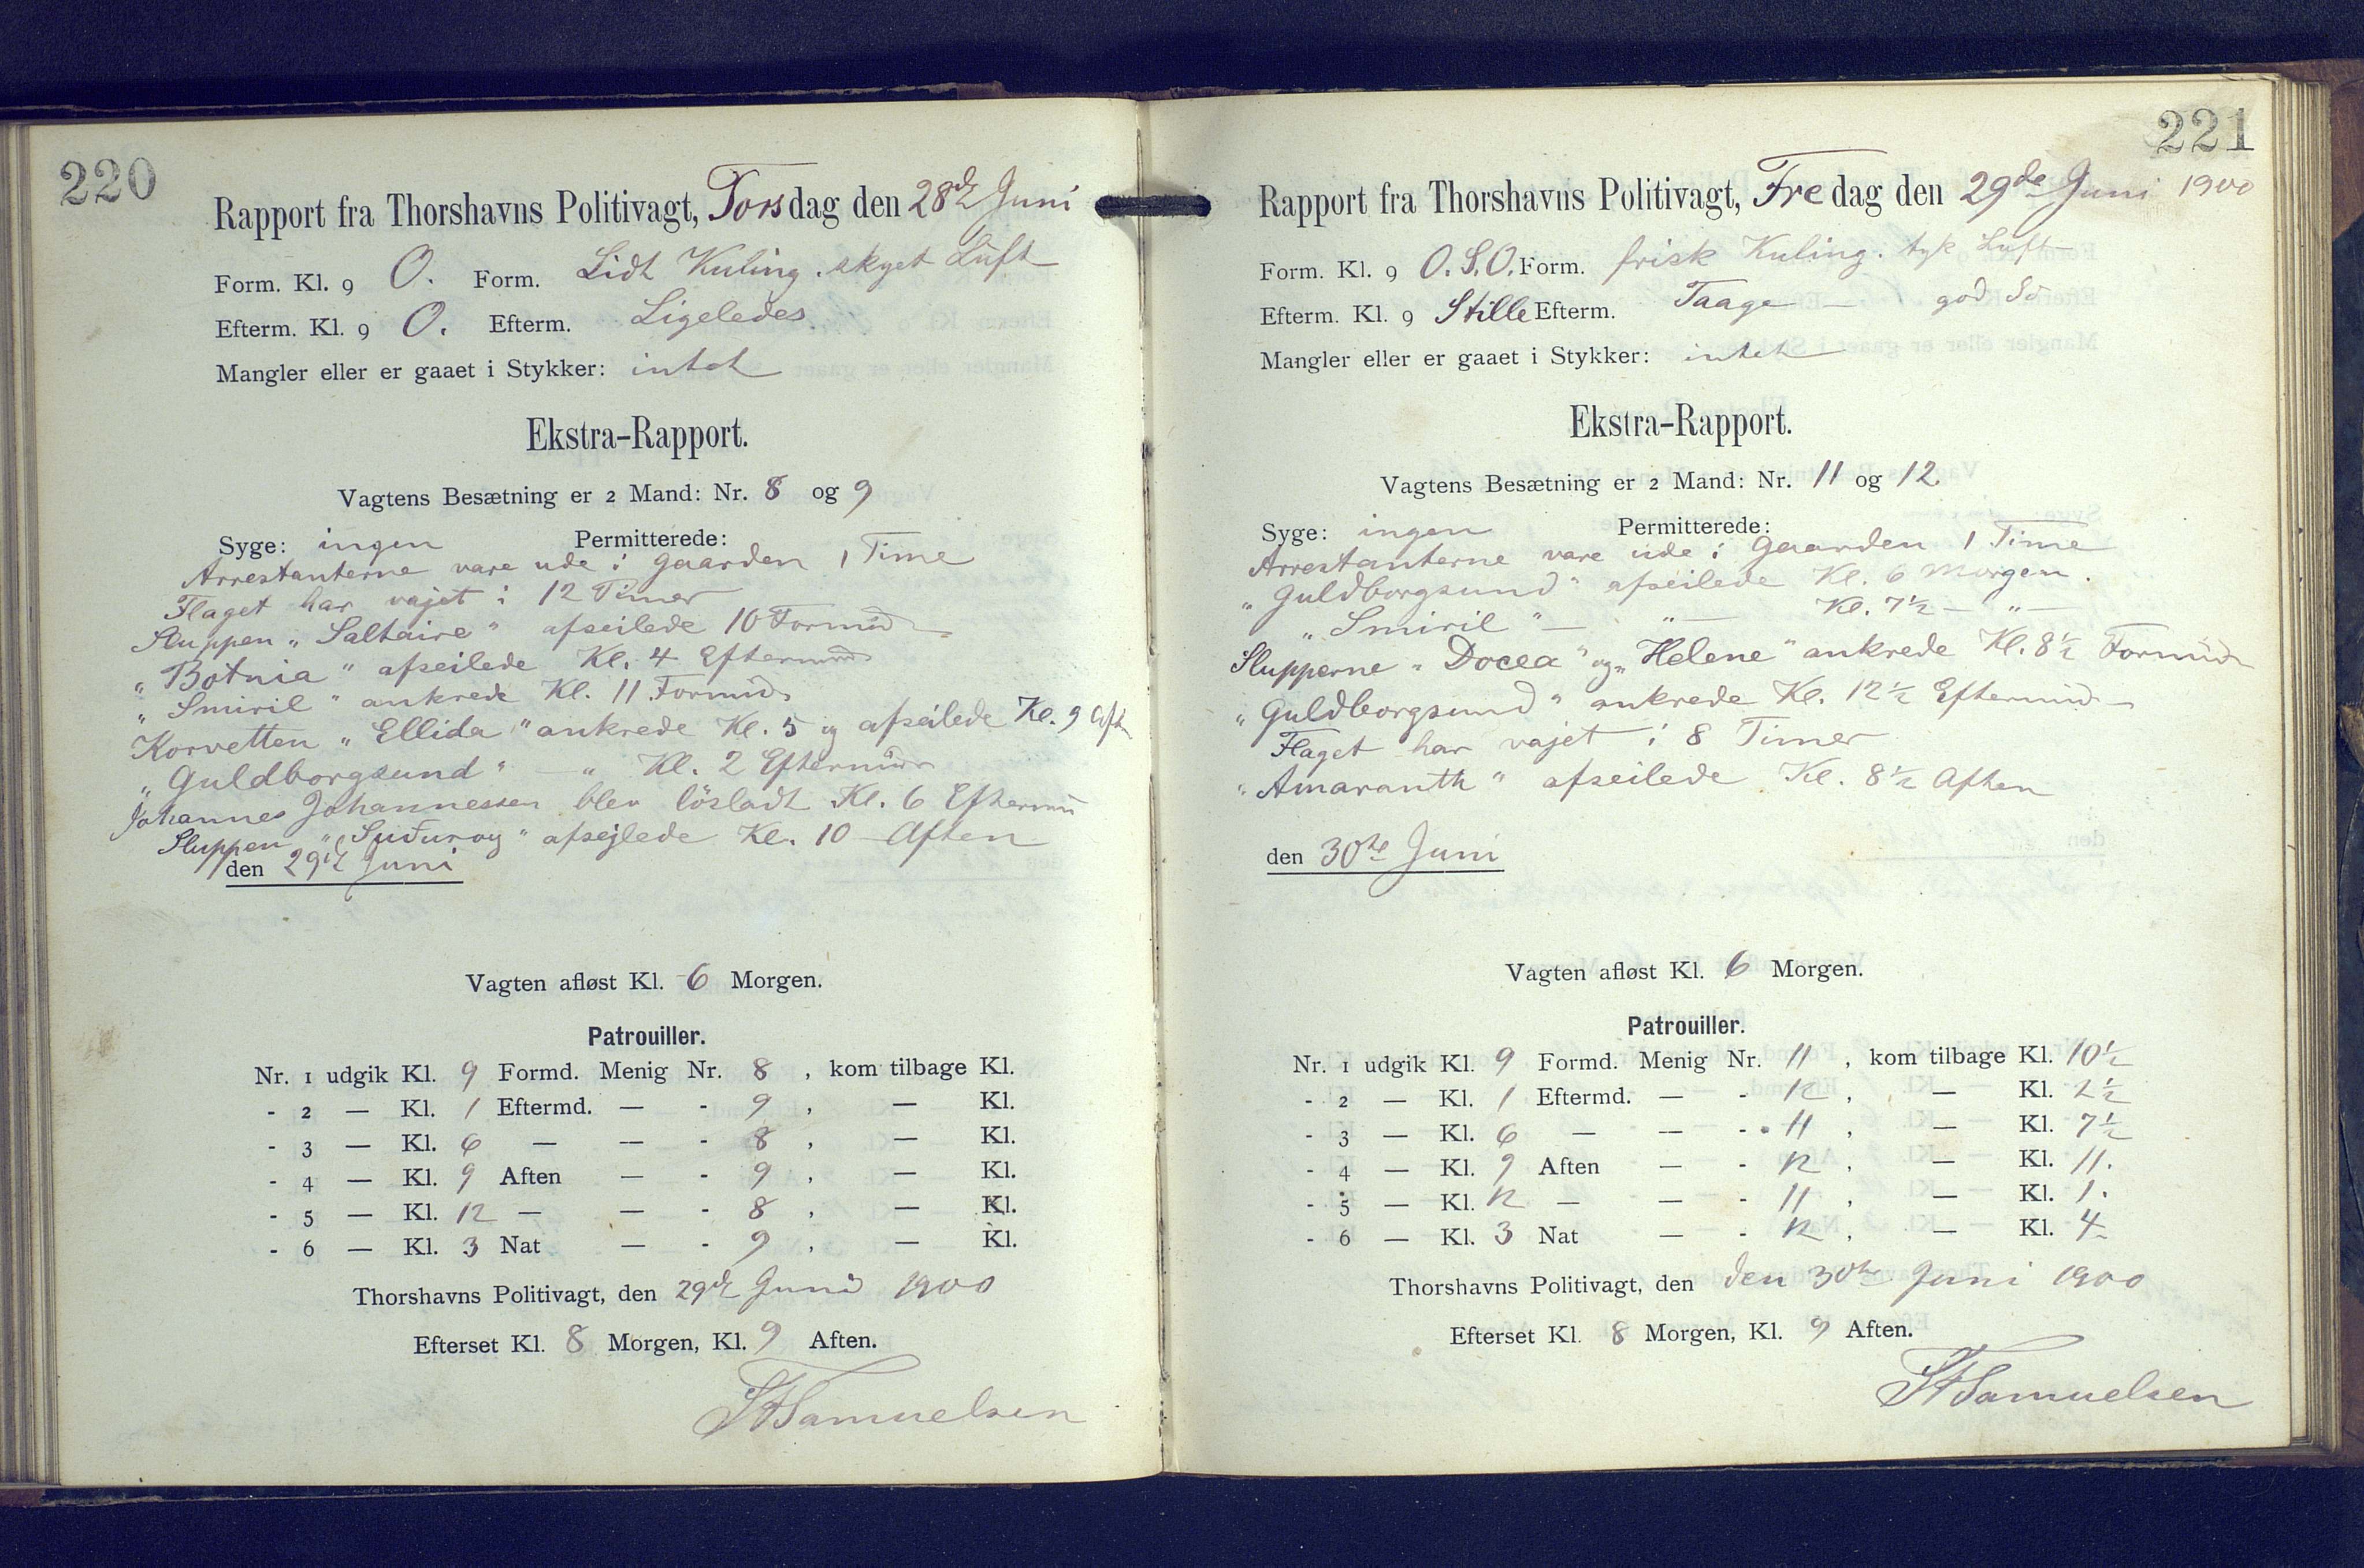 220
Rapport fra Thorshavns Politivagt, Torsdag den 28de Juni
Form. Kl. 9 O. Form. Lidt Kuling. skyet Luft
Efterm. Kl. 9 O. Efterm. Ligeledes
Mangler eller er gaaet i Stykker: intet
Ekstra-Rapport.
Vagtens Besætning er 2 Mand: Nr. 8 og 9
Syge: ingen Permitterede:
Arrestanterne vare ude i Gaarden 1 Time
Flaget har vajet i 12 Timer
Sluppen „Saltaire" afseilede 10 Formid
„Botnia" afseilede Kl. 4 Eftermid
„Smiril" ankrede Kl. 11 Formid
Korvetten „Ellida" ankrede Kl. 5 og afseilede Kl. 9 Aft
„Guldborgsund" — " Kl. 2 Eftermid
Johannes Johannessen blev løsladt Kl. 6 Eftermi
Sluppen „Suđuroy" afsejlede Kl. 10 Aften
den 29de Juni
Vagten afløst Kl. 6 Morgen.
Patrouiller.
Nr. 1 udgik Kl. 9 Formd. Menig Nr. 8, kom tilbage Kl.
- 2 — Kl. 1 Eftermd. — - 9, — Kl.
- 3 — Kl. 6 — — - 8, — Kl.
- 4 — Kl. 9 Aften — - 9, — Kl.
- 5 — Kl. 12 — — - 8, — Kl.
- 6 — Kl. 3 Nat — - 9, — Kl.
Thorshavns Politivagt, den 29de Juni 1900
Efterset Kl. 8 Morgen, Kl. 9 Aften.
Samuelsen
221
Rapport fra Thorshavns Politivagt, Fredag den 29de Juni 1900
Form. Kl. 9 O.S.O. Form. frisk Kuling. tyk Luft
Efterm. Kl. 9 Stille Efterm. Taage — god Sö
Mangler eller er gaaet i Stykker: intet
Ekstra-Rapport.
Vagtens Besætning er 2 Mand: Nr. 11 og 12
Syge: ingen Permitterede:
Arrestanterne vare ude i Gaarden 1 Time
„Guldborgsund" afseilede Kl. 6 Morgen.
„Smiril" — " — Kl. 7½ — " —
Slupperne „Docea" og „Helene" ankrede Kl. 8½ Formid
„Guldborgsund" ankrede Kl. 12½ Eftermid
Flaget har vajet i 8 Timer
„Amaranth" afseilede Kl. 8½ Aften
den 30te Juni
Vagten afløst Kl. 6 Morgen.
Patrouiller.
Nr. 1 udgik Kl. 9 Formd. Menig Nr. 11, kom tilbage Kl. 10½
- 2 — Kl. 1 Eftermd. — - 12, — Kl. 2½
- 3 — Kl. 6 — — - 11, — Kl. 7½
- 4 — Kl. 9 Aften — - 12, — Kl. 11.
- 5 — Kl. 12 — — - 11, — Kl. 1.
- 6 — Kl. 3 Nat — - 12, — Kl. 4
Thorshavns Politivagt, den den 30te Juni 1900
Efterset Kl. 8 Morgen, Kl. 9 Aften.
Samuelsen